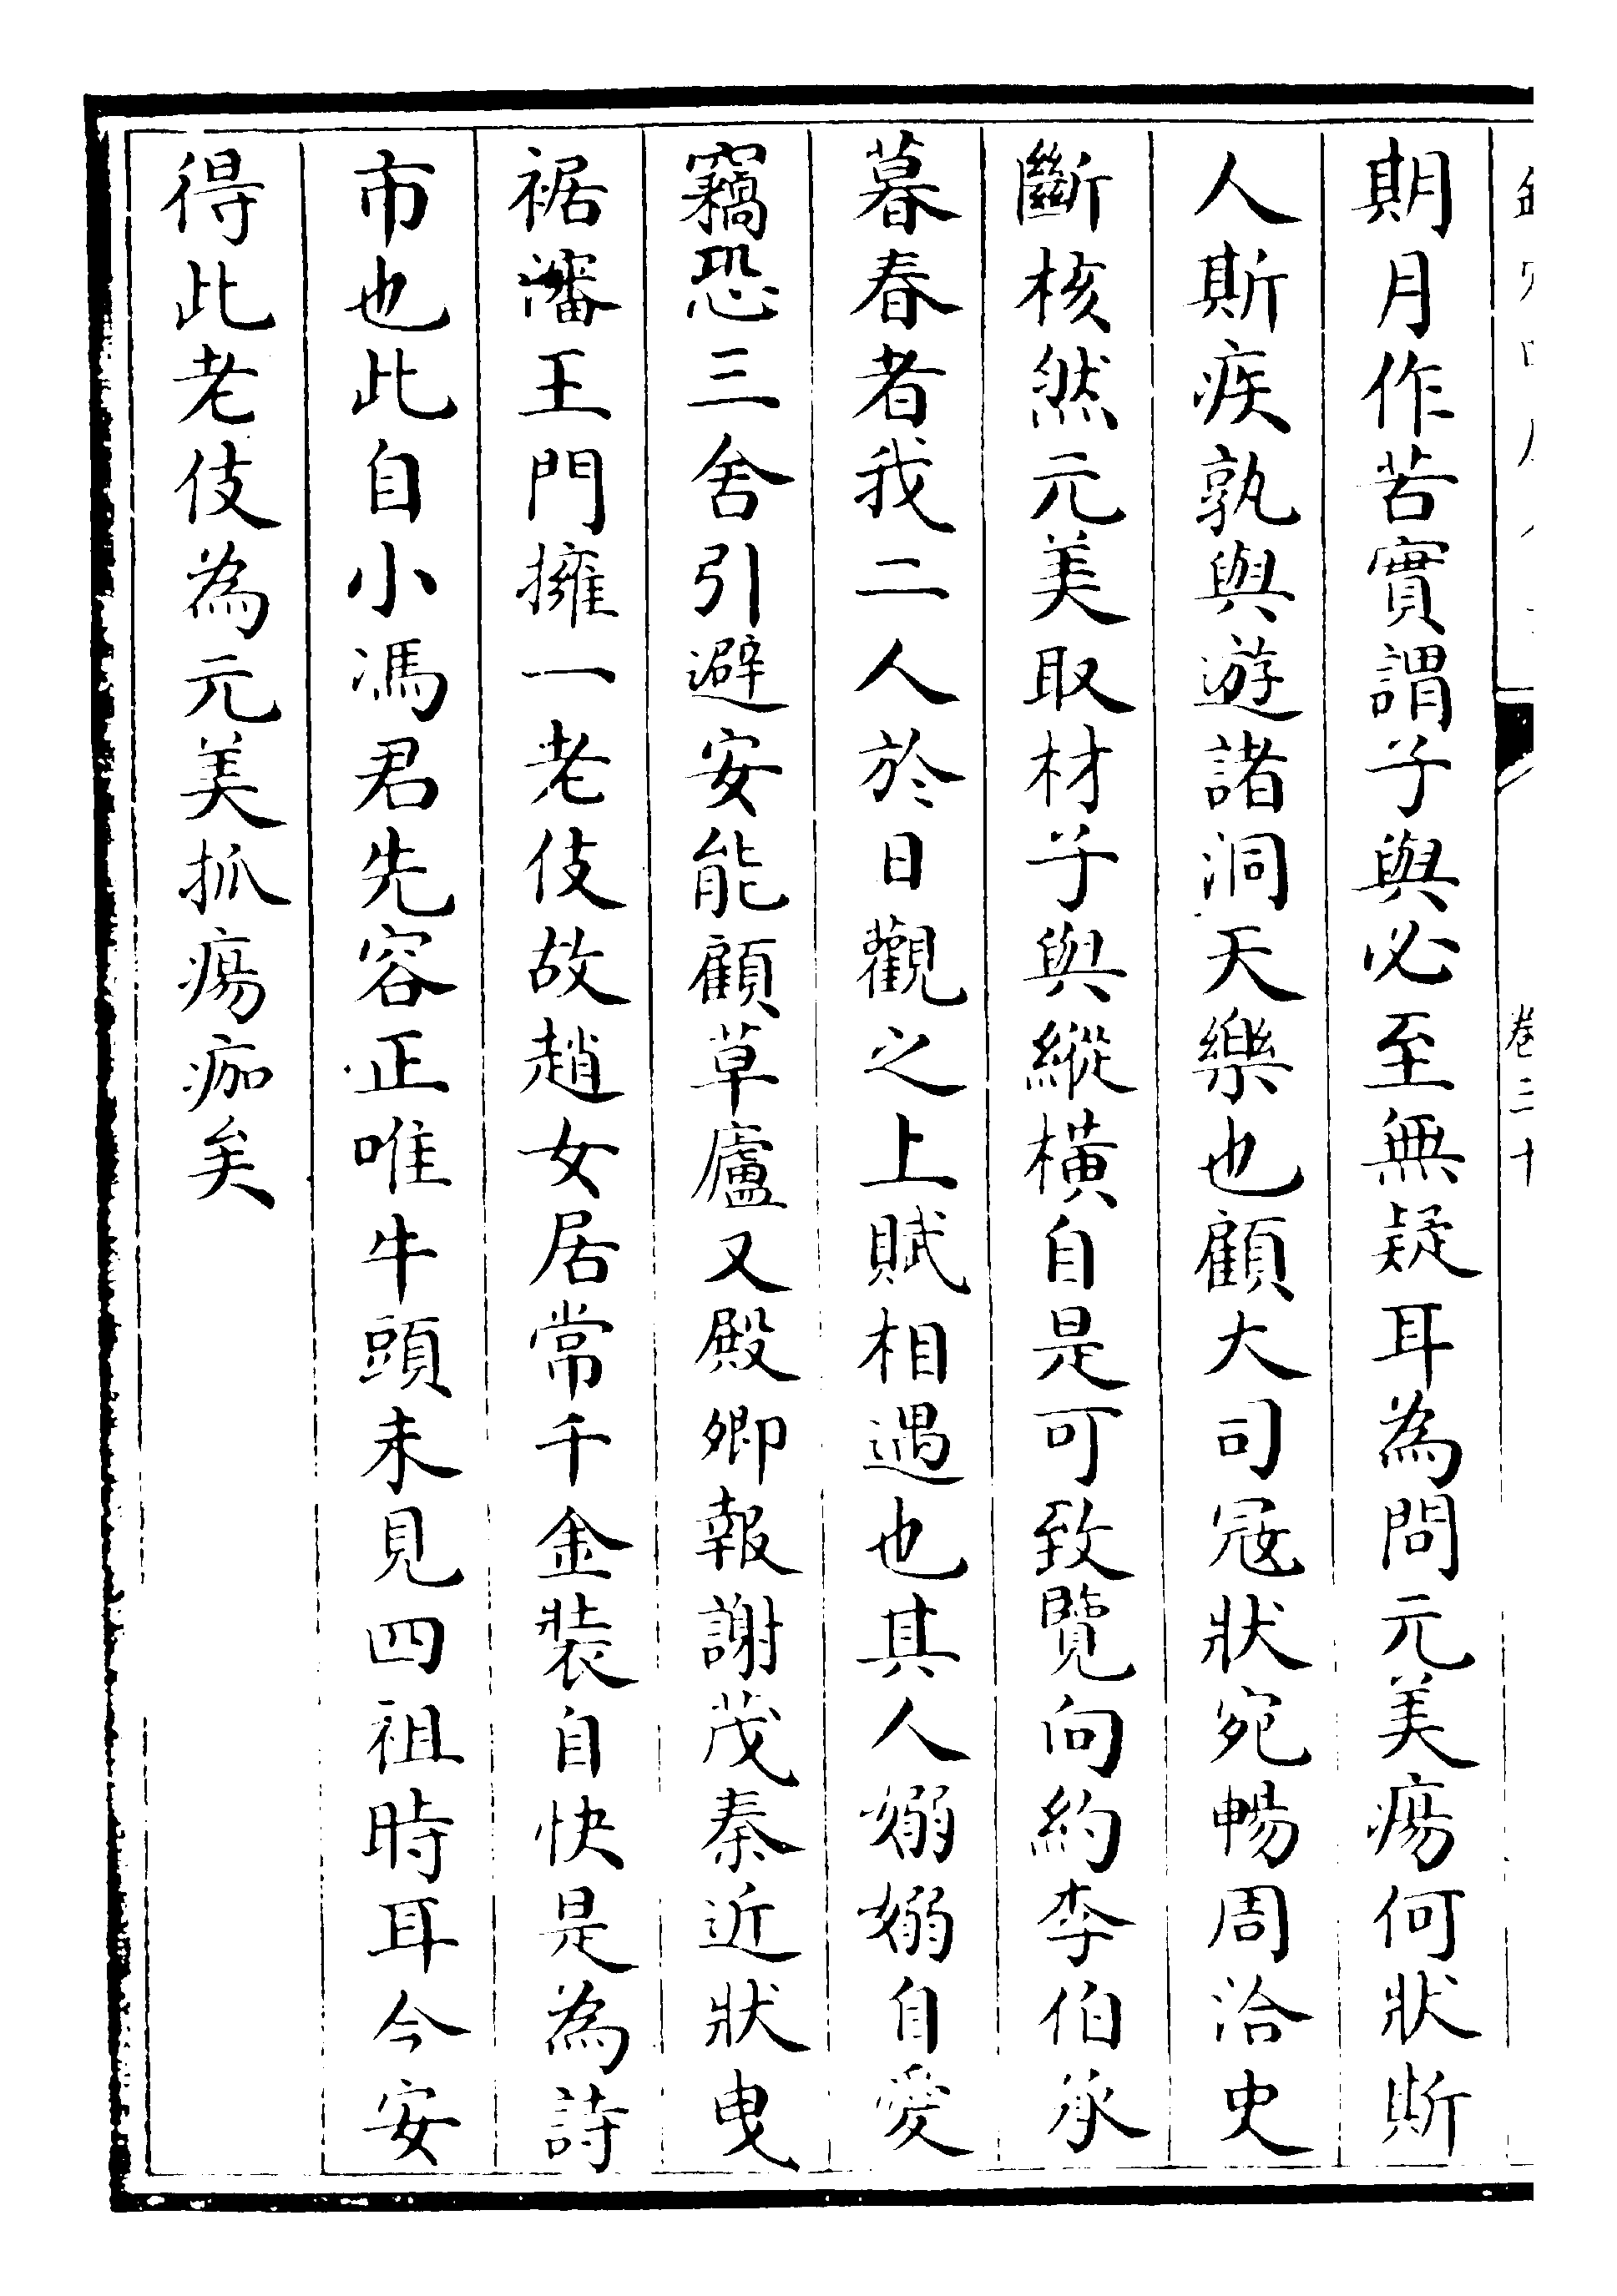 卷三十
期月作苦實謂子與必至無疑耳為問元美瘍何狀斯
人斯疾孰與遊諸洞天樂也顧大司寇狀宛暢周洽史
斷核然元美取材子與縱橫自是可致覽向約李伯承
暮春者我二人於日觀之上賦相遇也其人嫋嫋自愛
竊恐三舍引避安能顧草廬又殿卿報謝茂秦近狀曳
裾瀋王門擁一老伎故趙女居常千金裝自快是為詩
市也此自小馮君先容正唯牛頭未見四祖時耳今安
得此老伎為元美抓瘍痂矣